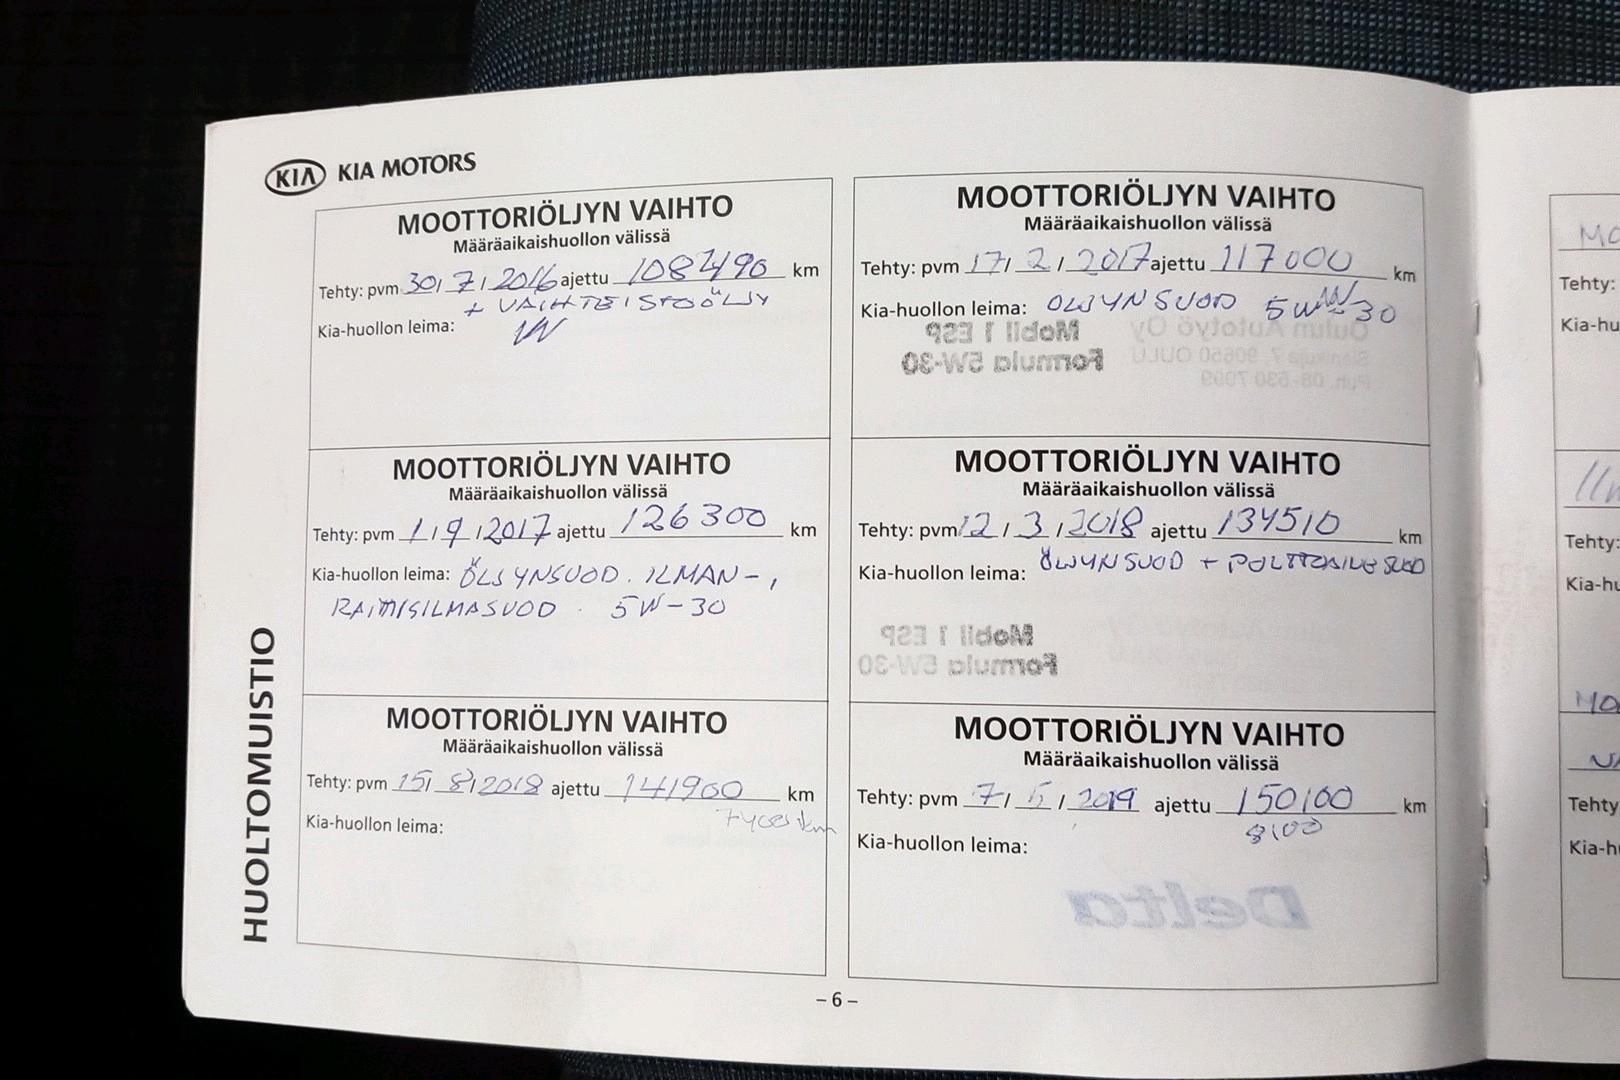 KIA KIA MOTORS
MOOTTORIÖLJYN VAIHTO
Määräaikaishuollon välissä
Tehty: pvm 30/7/2016 ajettu 108490 km
+ VAIHTEISTOÖLJY
Kia-huollon leima:
MOOTTORIÖLJYN VAIHTO
Määräaikaishuollon välissä
Tehty: pvm 17/2/2017 ajettu 117000 km
Kia-huollon leima: ÖLJYNSUOD 5W-30
Mobil 1 ESP
Formula 5W-30
Oulun Autotyö Oy
90650 OULU
Puh. 08-530 7099
MOOTTORIÖLJYN VAIHTO
Määräaikaishuollon välissä
Tehty: pvm 1/9/2017 ajettu 126300 km
Kia-huollon leima: ÖLJYNSUOD. ILMAN-,
RAITISILMASUOD. 5W-30
MOOTTORIÖLJYN VAIHTO
Määräaikaishuollon välissä
Tehty: pvm 12/3/2018 ajettu 134510 km
Kia-huollon leima: ÖLJYNSUOD + POLTTOAINESUOD
Mobil 1 ESP
Formula 5W-30
MOOTTORIÖLJYN VAIHTO
Määräaikaishuollon välissä
Tehty: pvm 15/8/2018 ajettu 141900 km
Kia-huollon leima:
MOOTTORIÖLJYN VAIHTO
Määräaikaishuollon välissä
Tehty: pvm 7/5/2019 ajettu 150100 km
8100
Kia-huollon leima:
Delta
HUOLTOMUISTIO
– 6 –
MO
Tehty:
Kia-hu
Tehty:
Kia-hu
MO
Tehty
Kia-h